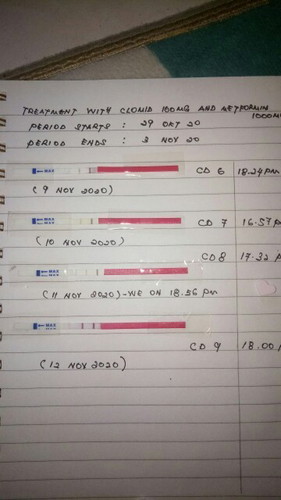 TREATMENT WITH CLOMID 100MG AND METFORMIN 1000M
PERIOD STARTS : 29 OKT 20
PERIOD ENDS : 3 NOV 20
MAX CD 6 18.24PM
(9 NOV 2020)
MAX CD 7 16.57P
(10 NOV 2020)
CD 8 17.32 P
MAX
(11 NOV 2020) - WE ON 18.56 PM
MAX CD 9 18.00 P
(12 NOV 2020)